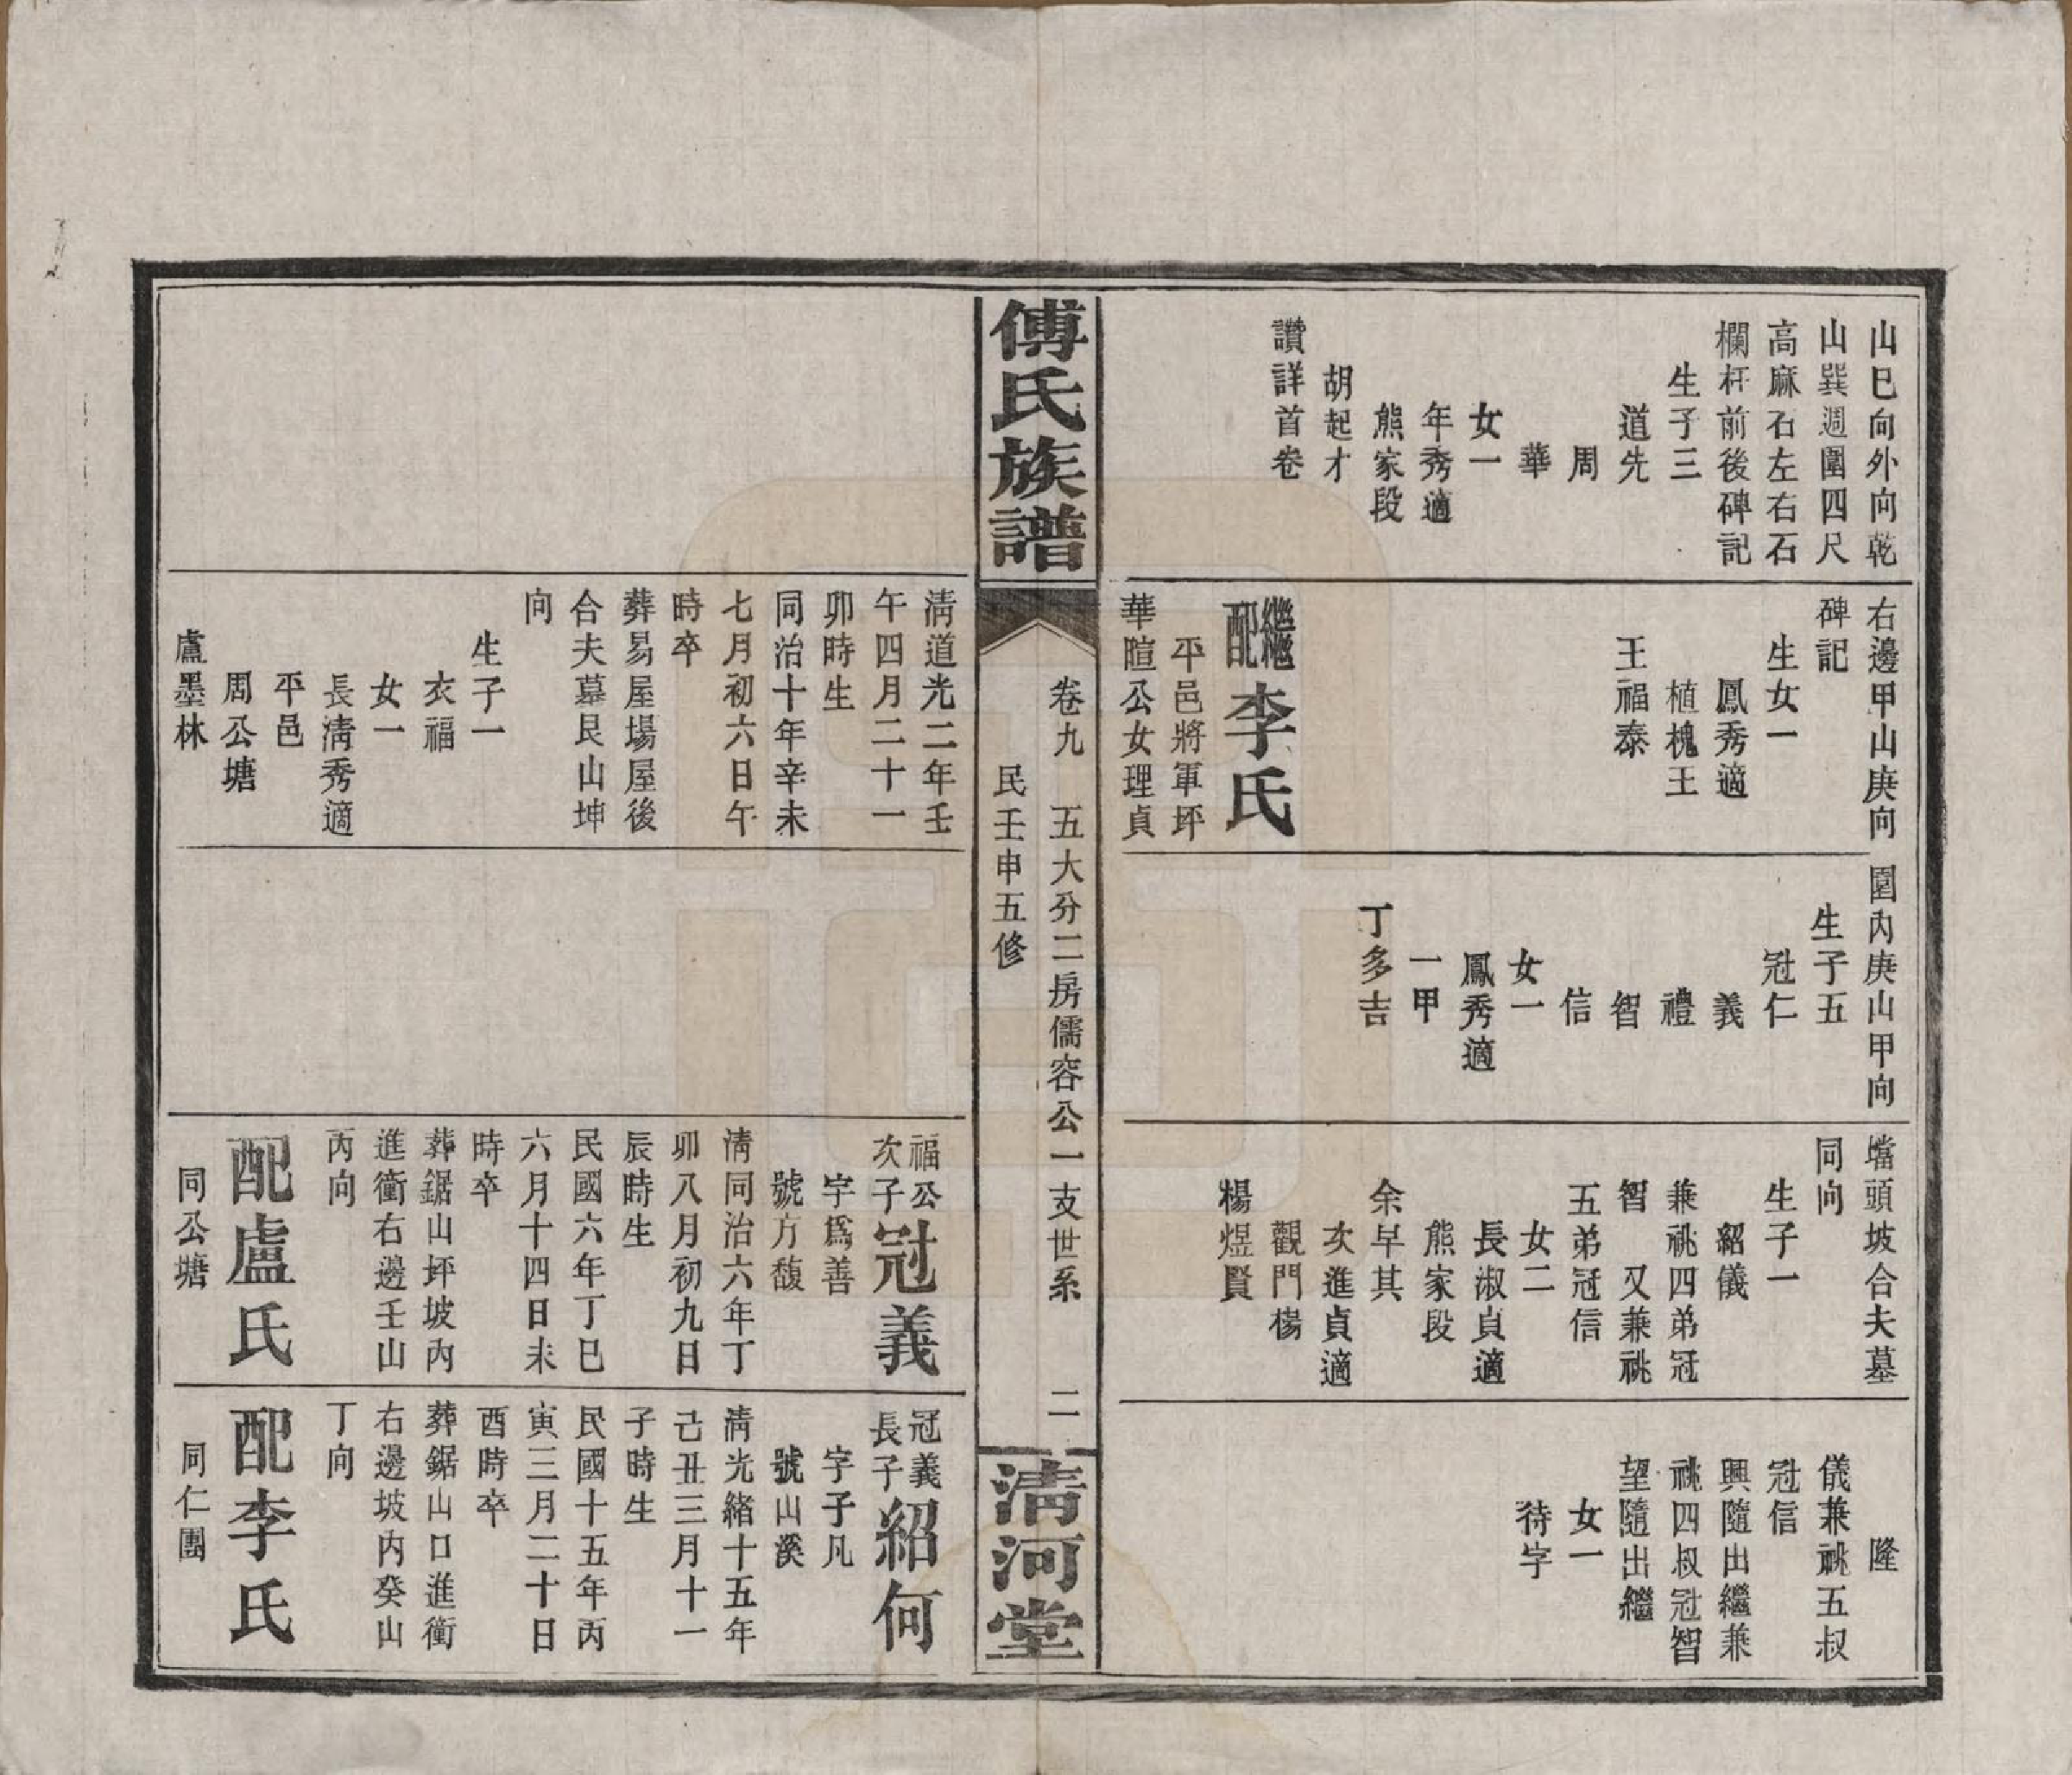 山巳向外向乾
山巽週圍四尺
高麻石左右石
欄杆前後碑記
生子三
道先
周
華
女一
年秀適
熊家段
胡起才
讚詳首卷
右邊甲山庚向
碑記
生女一
鳳秀適
植槐王
王福泰
繼配李氏
平邑將軍坪
華暄公女理貞
圍內庚山甲向
生子五
冠仁
義
禮
智
信
女一
鳳秀適
一甲
丁多吉
壋頭坡合夫墓
同向
生子一
紹儀
兼祧四弟冠
智 又兼祧
五弟冠信
女二
長淑貞適
熊家段
余早其
次進貞適
觀門楊
楊煜賢
隆
儀兼祧五叔
冠信
興隨出繼兼
祧四叔冠智
望隨出繼
女一
待字
傅氏族譜
卷九 五大分二房儒容公一支世系 二
民壬申五修
清河堂
清道光二年壬
午四月二十一
卯時生
同治十年辛未
七月初六日午
時卒
葬易屋場屋後
合夫墓艮山坤
向
生子一
衣福
女一
長清秀適
平邑
周公塘
盧墨林
福公次子冠義
字爲善
號方馥
清同治六年丁
卯八月初九日
辰時生
民國六年丁巳
六月十四日未
時卒
葬鋸山坪坡內
進衝右邊壬山
丙向
配盧氏
同公塘
冠義長子紹何
字子凡
號山溪
清光緒十五年
己丑三月十一
子時生
民國十五年丙
寅三月二十日
酉時卒
葬鋸山口進衝
右邊坡內癸山
丁向
配李氏
同仁團